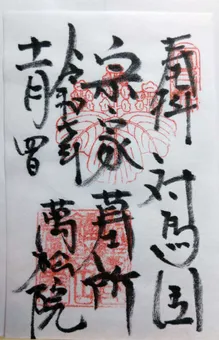 奉拝 対馬国
宗家墓所
令和 年 萬松院
十一月四日